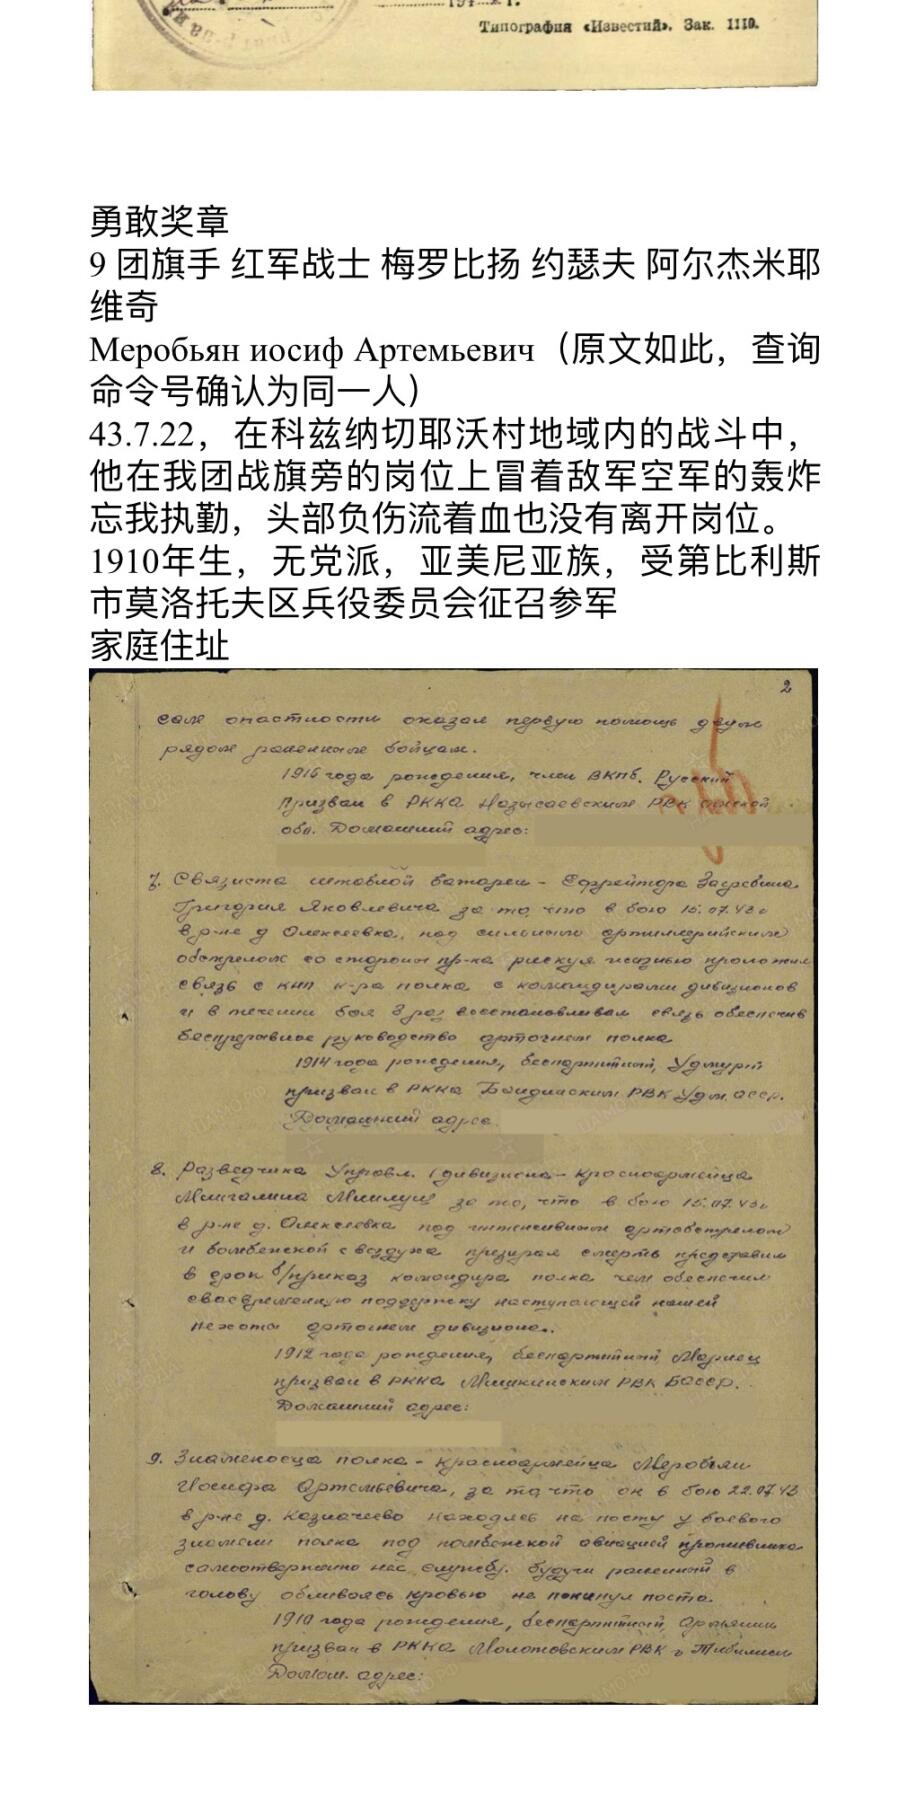 194
Типография «Известий». Зак. 1110.
勇敢奖章
9 团旗手 红军战士 梅罗比扬 约瑟夫 阿尔杰米耶
维奇
Меробьян иосиф Артемьевич（原文如此，查询
命令号确认为同一人）
43.7.22，在科兹纳切耶沃村地域内的战斗中，
他在我团战旗旁的岗位上冒着敌军空军的轰炸
忘我执勤，头部负伤流着血也没有离开岗位。
1910年生，无党派，亚美尼亚族，受第比利斯
市莫洛托夫区兵役委员会征召参军
家庭住址
2
опастности оказал первую помощь двум
рядом раненным бойцам.
1916 года рождения, член ВКПб. Русский
Призван в РККА РВК Омской
обл. Домашний адрес:
7. Связиста штабной батареи - Ефрейтора
Григория Яковлевича за то, что в бою 15.07.43г
в р-не д Олексеевка, под сильным артиллерийским
обстрелом со стороны пр-ка рискуя жизнью проложил
связь с КНП к-ра полка с командирами дивизионов
и в течении боя 3 раз восстановливал связь обеспечив
беспрерывное руководство артогнем полка
1914 года рождения, беспартийный, Удмурт
призван в РККА РВК Удм. АССР.
Домашний адрес
8. Разведчика Управл. 1 дивизиона - Красноармейца
за то, что в бою 15.07.43г
в р-не д. Олексеевка под интенсивным артобстрелом
и бомбежкой с воздуха презирая смерть представил
в срок б/приказ командира полка чем обеспечил
своевременную поддержку наступающей нашей
пехоты артогнем дивизиона.
1912 года рождения, беспартийный, Мариец
призван в РККА Мишкинским РВК БАССР.
Домашний адрес:
9. Знаменосца полка - Красноармейца Меробьян
Иосифа Артемьевича, за то, что он в бою 22.07.43
в р-не д. Казначеево находясь на посту у боевого
знамени полка под бомбежкой авиацией противника
самоотверженно нес службу. Будучи раненный в
голову обливаясь кровью не покинул поста.
1910 года рождения, беспартийный, Армянин
призван в РККА Молотовским РВК г. Тибилиси
Домаш. адрес: